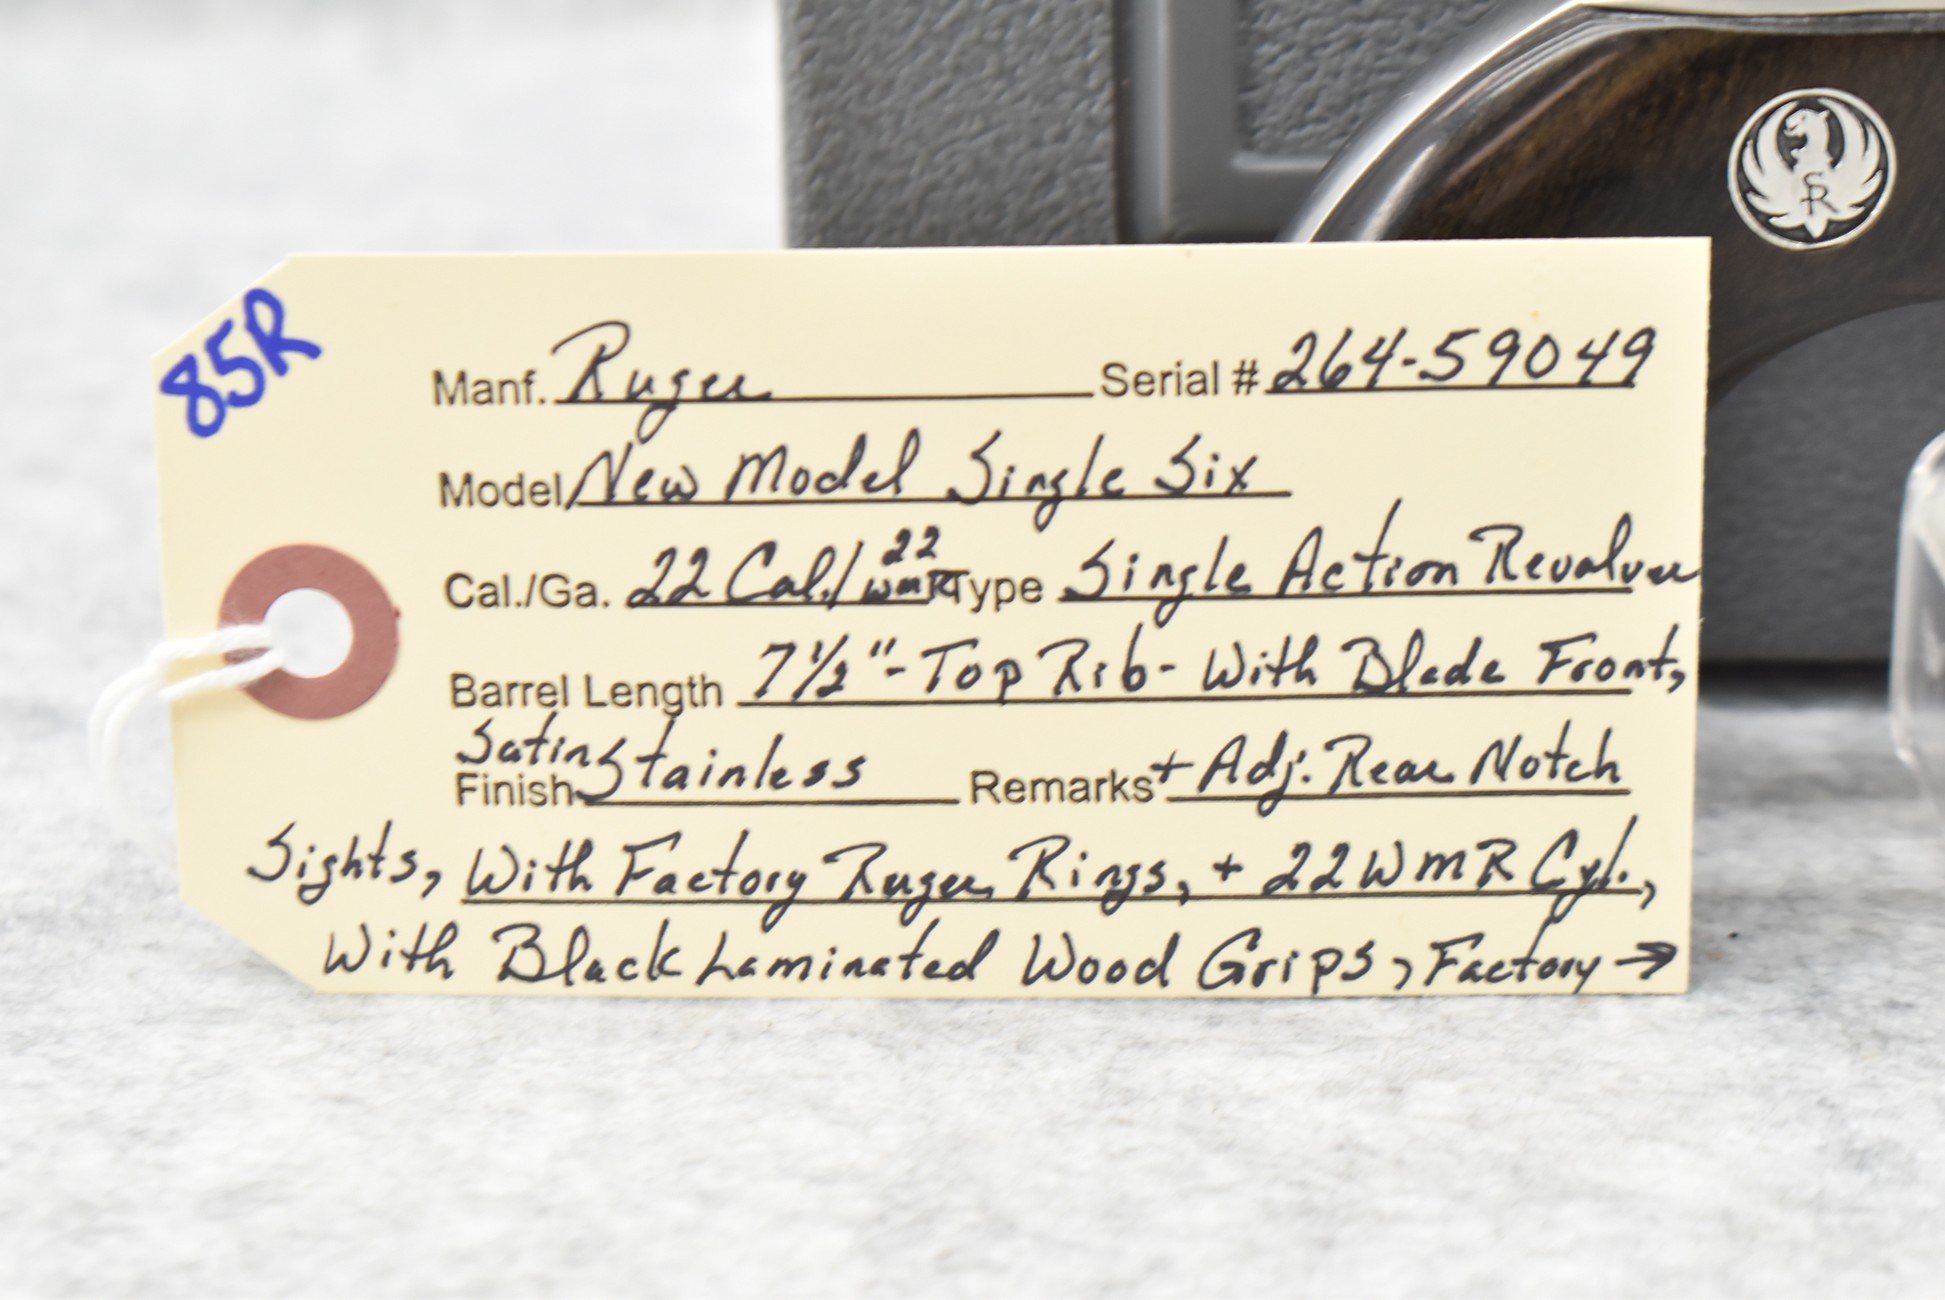 85R
Manf. Ruger Serial # 264-59049
Model New Model Single Six
Cal./Ga. 22 Cal./ 22 WMR Type Single Action Revolver
Barrel Length 7 1/2" - Top Rib - With Blade Front,
Finish Satin Stainless Remarks + Adj. Rear Notch
Sights, With Factory Ruger Rings, + 22 WMR Cyl.,
With Black Laminated Wood Grips, Factory →
SR